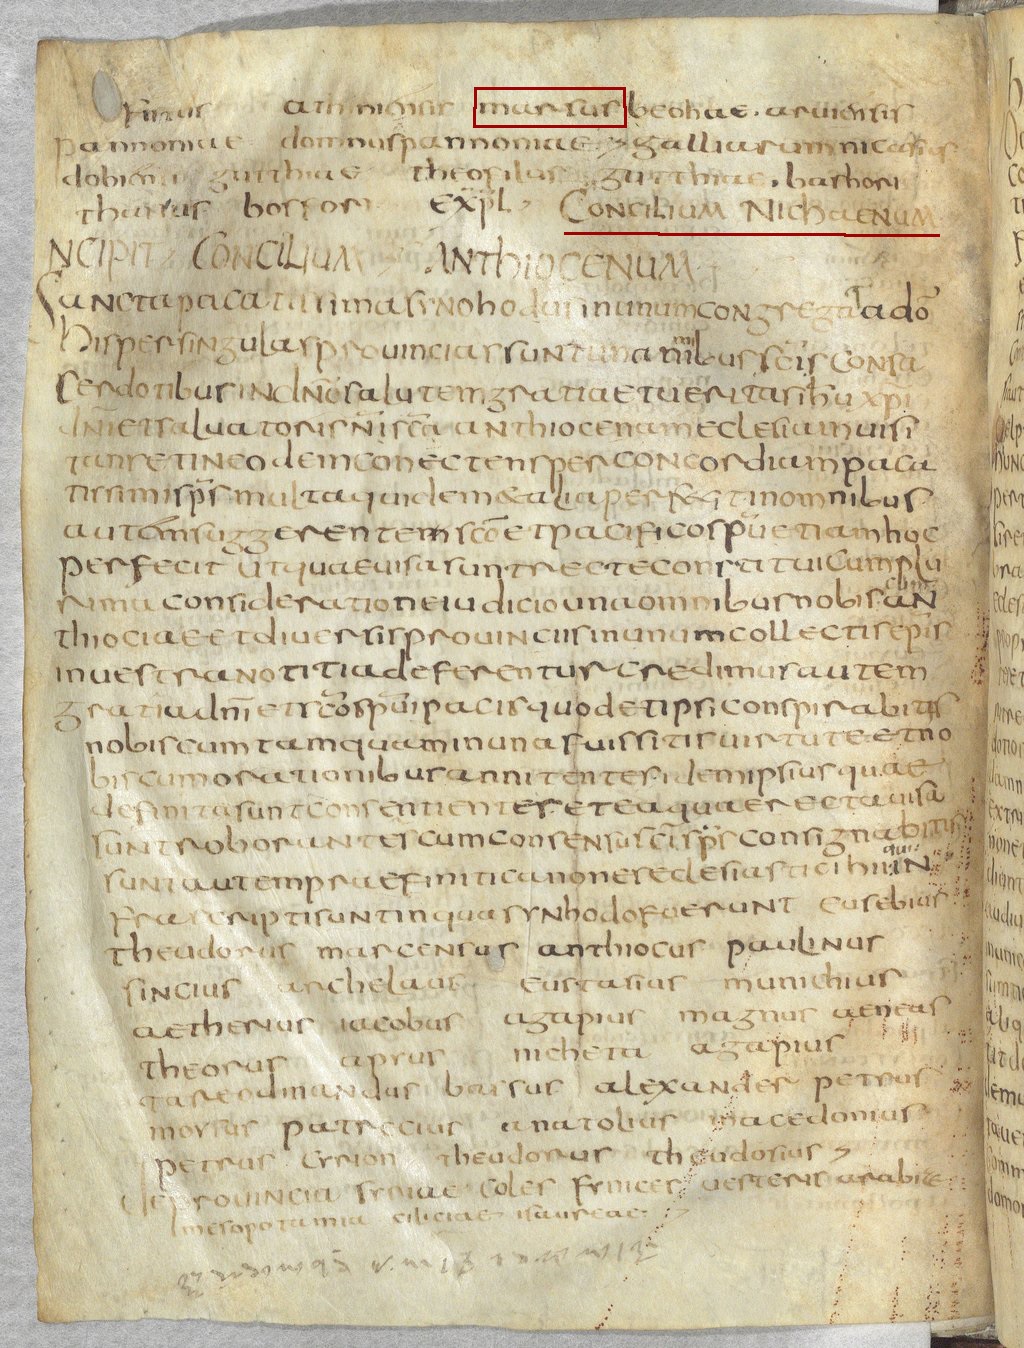 athinensis marsus beohae · aruiensis
pannoniae domnus pannoniae galliarum nicasius
gutthiae theofilus gutthiae · basfori
thanus bosfori Expl Concilium Nichaenum
NCIPIT CONCILIUM ANTHIOCENUM
Sancta pacatissima synohodus in unum congregata a dō
His per singulas prouincias sunt unanimibus sc̄is consa
cerdotibus in dn̄o salutem gratia et ueritas ih̄u xp̄i
dn̄i et saluatoris n̄i sc̄a anthiocenam eclesiam uisi
tans et in eodem conectens per concordiam paca
tissimi sp̄s multa quidem & alia perfecit in omnibus
autem suggerentem sc̄o et pacifico sp̄u etiam hoc
perfecit ut quae uisa sunt recte constitui cum plu
rima consideratione iudicio una omnibus nobis cunt an
thiociae et diuersis prouinciis in unum collectis ep̄is
in uestra notitia deferentur credimus autem
gratia dn̄i et sc̄os pacis quod et ipsi conspirabitis
nobiscum tamquam in una fuissitis uirtute et no
biscum orationibus annitentes idem ipsius quae
definita sunt consentientes et ea quae recta uisa
sunt roborantes cum consensu sc̄i sp̄s consignabitis
sunt autem praefiniti canones eclesiastici hii qui in
fra scripti sunt in qua synhodo fuerunt eusebius
theudorus marcensus anthiocus paulinus
sincius archelaus eustasius munichius
aetherius iacobus agapius magnus aeneas
theorus aprus nicheta agapius
tareodimandus bassus alexander petrus
morsus patrecius anatolius macedonius
petrus cyrion theudorus theudosius
De prouincia syriae coles fynices uesteris arabiae
mesopotamia ciliciae isaureae